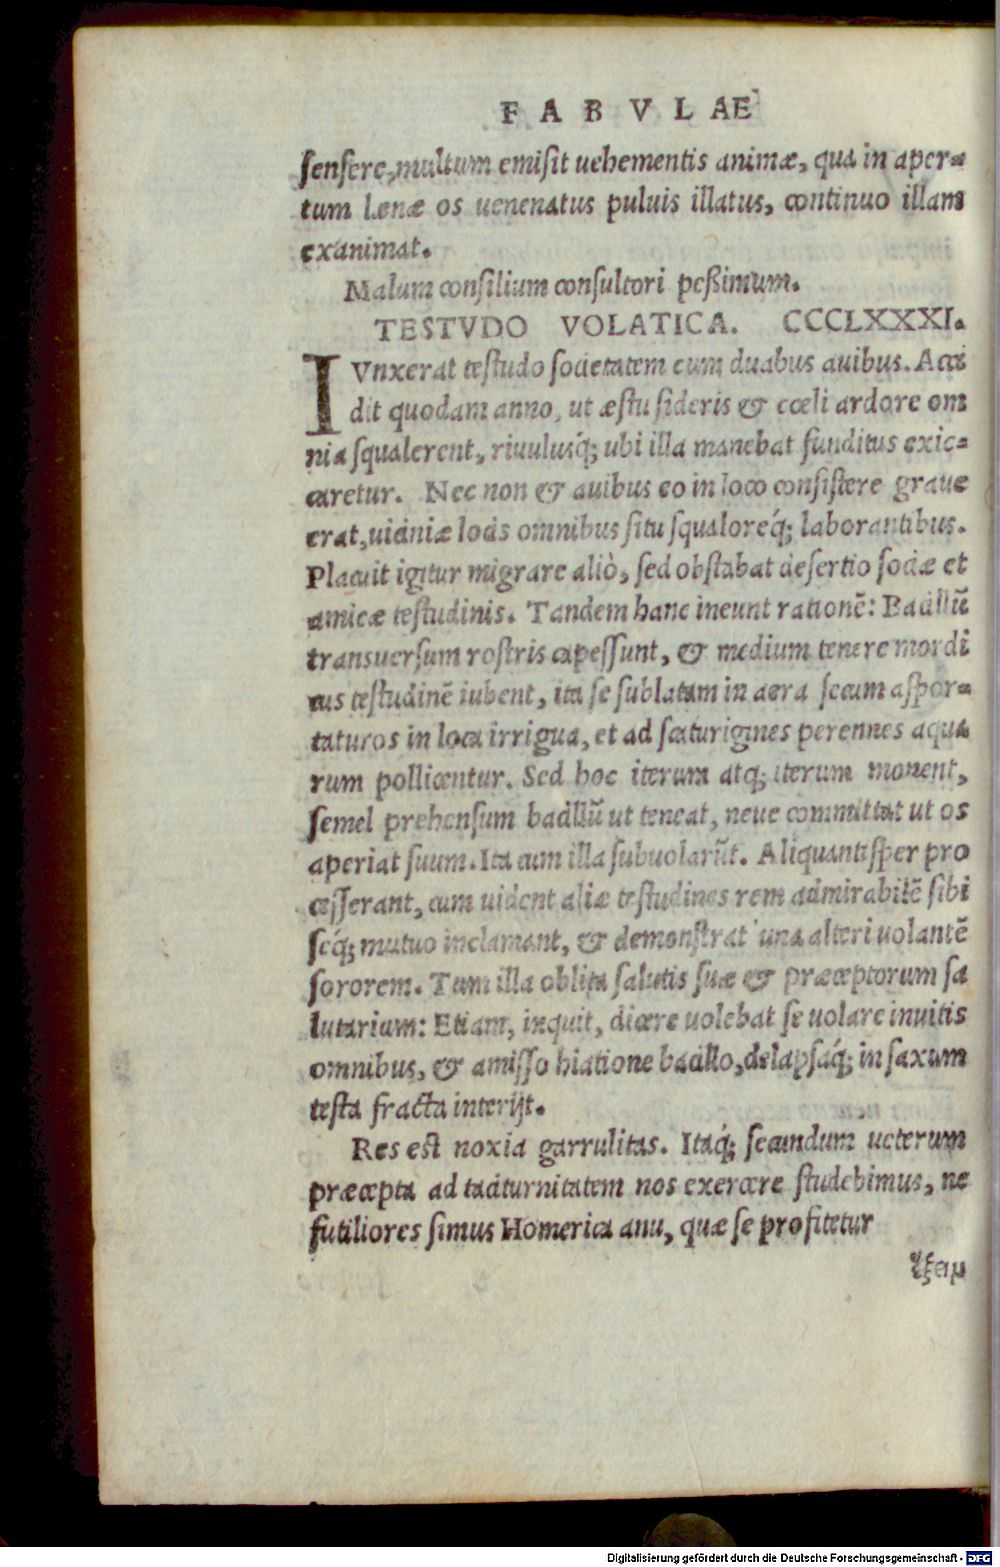 FABVLAE
sensere, multum emisit uehementis animæ, qua in aper-
tum Lenæ os uenenatus puluis illatus, continuo illam
exanimat.
Malum consilium consultori peßimum.
TESTVDO VOLATICA. CCCLXXXI.
IVnxerat testudo societatem cum duabus auibus. Acci
dit quodam anno, ut æstu sideris & cœli ardore om
nia squalerent, riuulusq́; ubi illa manebat funditus exic-
caretur. Nec non & auibus eo in loco consistere graue
erat, uiciniæ locis omnibus situ squaloreq́; laborantibus.
Placuit igitur migrare aliò, sed obstabat desertio sociæ et
amicæ testudinis. Tandem hanc ineunt rationē: Bacillū
transuersum rostris capessunt, & medium tenere mordi
cus testudinē iubent, ita se sublatam in aera secum aspor-
taturos in loca irrigua, et ad scaturigines perennes aqua
rum pollicentur. Sed hoc iterum atq; iterum monent,
semel prehensum bacillū ut teneat, neue committat ut os
aperiat suum. Ita cum illa subuolarūt. Aliquantisper pro
cesserant, cum uident aliæ testudines rem admirabilē sibi
seq́; mutuo inclamant, & demonstrat una alteri uolantē
sororem. Tum illa oblita salutis suæ & præceptorum sa
lutarium: Etiam, inquit, dicere uolebat se uolare inuitis
omnibus, & amisso hiatione bacillo, delapsaq́; in saxum
testa fracta interijt.
Res est noxia garrulitas. Itaq́; secundum ueterum
præcepta ad taciturnitatem nos exercere studebimus, ne
futiliores simus Homerica anu, quæ se profitetur
ἕξειμ